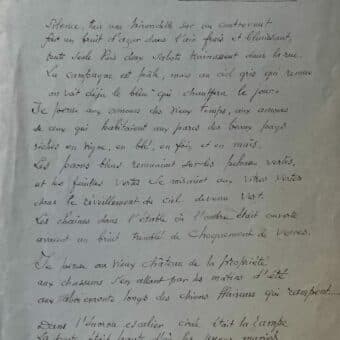 Silence, Puis une hirondelle sur un contrevent
fait un bruit d'azur dans l'air frais et bleuissant,
toute seule. Puis deux sabots traînassent dans la rue.
La campagne est pâle, mais au ciel gris qui remue
on voit déjà le bleu qui chauffera le jour.
Je pense aux amours des vieux temps, aux amours
de ceux qui habitaient aux parcs des beaux pays
riches en vigne, en blé, en foin, et en maïs.
Les paons bleus remuaient sur les pelouses vertes,
et les feuilles vertes se miraient aux vitres vertes
dans le réveillement du ciel devenu vert.
Les chaînes dans l'étable où l'ombre était ouverte
avaient un bruit tremblé de choquement de verres.
Je pense au vieux château de la propriété
aux chasseurs s'en allant par les matins d'été
aux aboiements longs des chiens flaireurs qui rampent.....
Dans l'énorme escalier ciré était la rampe.
La porte était haute d'où les jeunes mariés